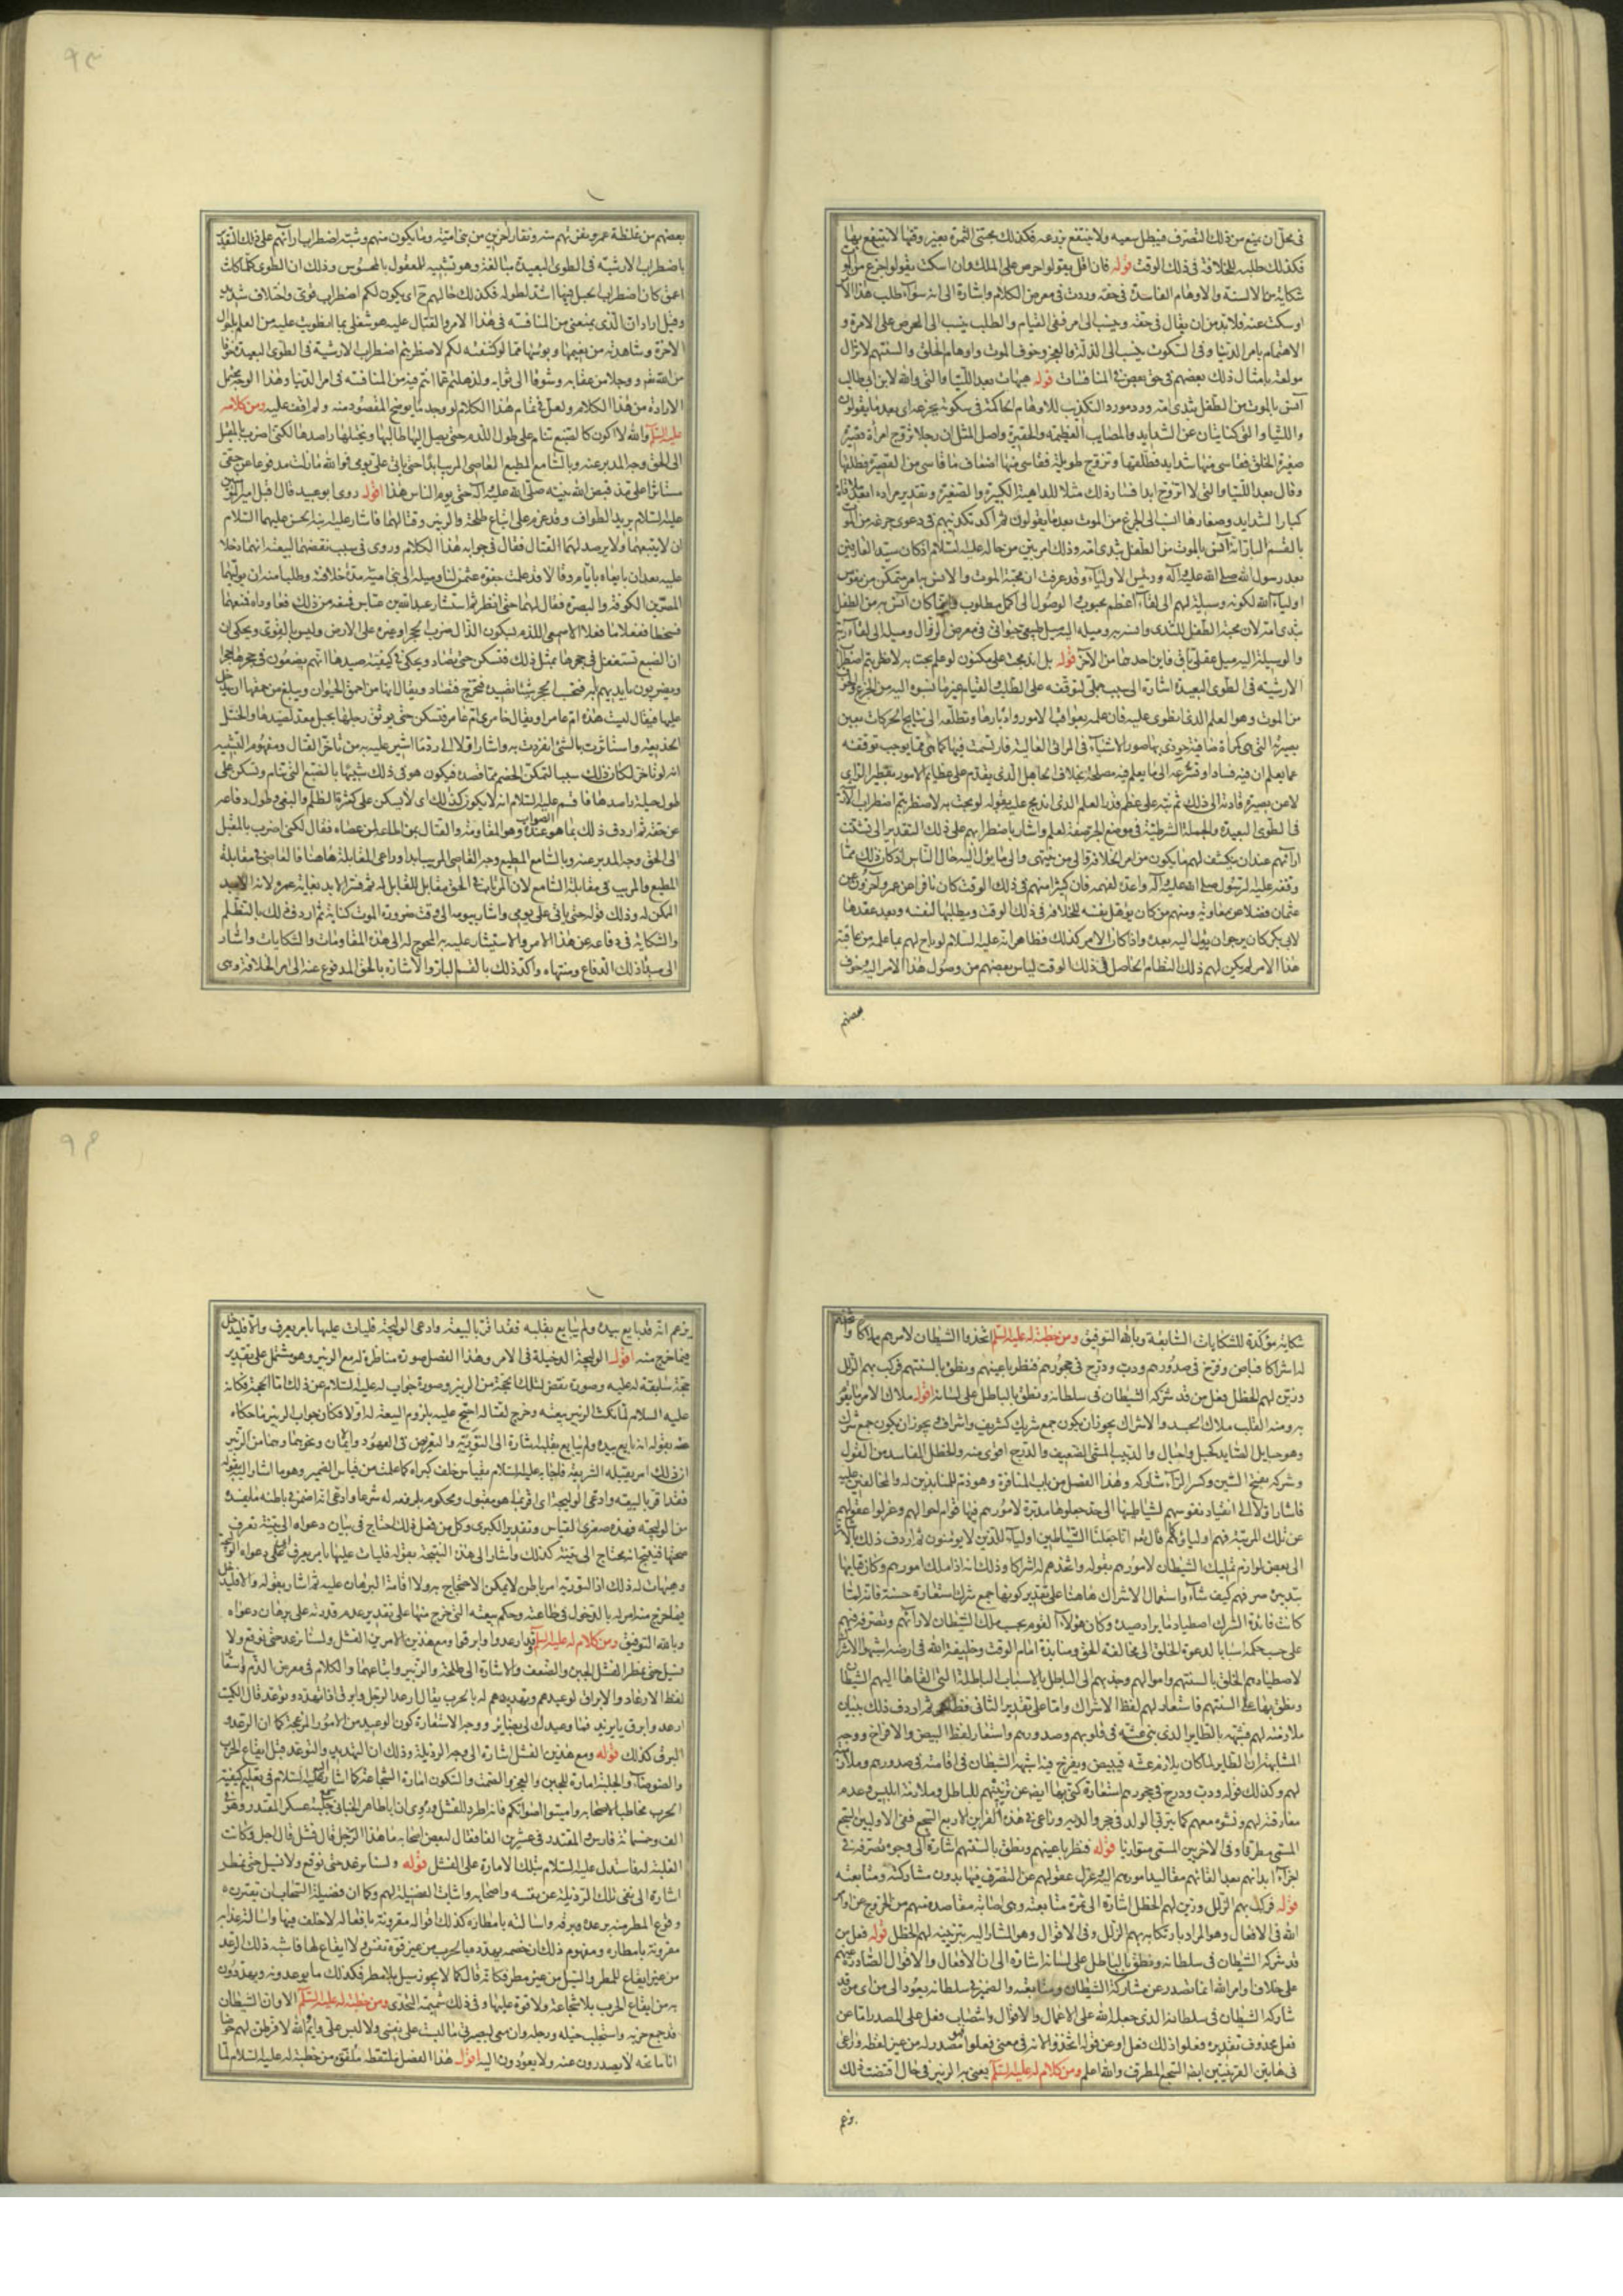 فى محلّ ان يمنع من ذلك التصرف فيبطل سعيه ولا ينتفع بزرعه فكذلك مجتنى الثمرة بغير وقتها لا ينتفع بها
فكذلك طلبه للخلافة فى ذلك الوقت قوله فان اقل يقولوا حرص على الملك وان اسكت يقولوا جزع من الموت
شكاية من الالسنة والاوهام الفاسدة فى حقه وردت فى معرض الكلام واشارة الى انه سواء طلب هذا الامر
او سكت عنه فلا بد من ان يقال فى حقه وينسب الى امر ففى القيام والطلب ينسب الى الحرص على الامرة و
الاهتمام بامر الدنيا وفى السكوت ينسب الى الذلة والعجز وخوف الموت واوهام الخلق والسنتهم لا تزال
مولعة بامثال ذلك بعضهم فى حق بعض فى المنافسات قوله هيهات بعد اللتيا والتى والله لابن ابى طالب
آنس بالموت من الطفل بثدى امه ورد مورد التكذيب للاوهام الحاكمة فى سكوته بجزعه اى بعد ما يقولون
واللتيا والتى كنايتان عن الشدايد والمصايب العظيمة والحقيرة واصل المثل ان رجلا تزوج امرأة قصيرة
صغيرة الخلق فقاسى منها شدايد فطلقها وتزوج طويلة فقاسى منها اضعاف ما قاسى من القصيرة فطلقها
وقال بعد اللتيا والتى لا اتزوج ابدا فصار ذلك مثلا للداهية الكبيرة والصغيرة وتقدير مراده ابعد ملاقاة
كبار الشدايد وصغارها انسب الى الجزع من الموت بعد ما يقولون ثم اكد تكذيبهم فى دعوى جزعه من الموت
بالقسم البار انه آنس بالموت من الطفل بثدى امه وذلك امر بيّن من حاله عليه السلام اذ كان سيد العارفين
بعد رسول الله صلى الله عليه وآله ورئيس الاولياء وقد عرفت ان محبة الموت والانس به امر متمكن من نفوس
اولياء الله لكونه وسيلة لهم الى لقاء اعظم محبوب والوصول الى اكمل مطلوب وانما كان آنس به من الطفل
بثدى امه لان محبة الطفل للثدى وانسه به وميله اليه ميل طبيعى حيوانى فى معرض الزوال وميله الى لقاء ربه
والوسيلة اليه ميل عقلى باق فاين احدهما من الآخر قوله بل اندمجت على مكنون لو علمتم به لاضطربتم اضطراب
الارشية فى الطوى البعيدة اشارة الى سبب جملى لتوقفه على الطلب والقيام غير ما نسبوه اليه من الجزع والخوف
من الموت وهو العلم الذى انطوى عليه فان علمه بعواقب الامور وادبارها وتطلعه الى نتايج الحركات بعين
بصيرته التى هى كمرآة صافية حوذى بها صور الاشياء فى المرائى العالية فارتسمت فيها كما هى مما يوجب توقفه
عما يعلم ان فيه فسادا وتسرعه الى ما يعلم فيه مصلحة بخلاف الجاهل الذى يقدم على عظايم الامور بقصير الراى
لا عن بصيرة قادته الى ذلك ثم نبه على عظم قدر العلم الذى اندمج عليه بقوله لو بحت به لاضطربتم اضطراب الارشية
فى الطوى البعيدة والجملة الشرطية فى موضع الجر صفة لعلم واشار باضطرابهم على ذلك التقدير الى تشتت
آرائهم عند ان يكشف لهم ما يكون من امر الخلافة والى من ينتهى والى ما يؤل اليه حال الناس اذ كان ذلك مما
وقفه عليه الرسول صلى الله عليه وآله واعده لفهمه فان كثيرا منهم فى ذلك الوقت كان نافرا عن عمر وآخرون عن
عثمان فضلا عن معاوية ومنهم من كان يؤهل نفسه للخلافة فى ذلك الوقت ويطلبها لنفسه وبعد عقدها
لابى بكر كان يرجو ان يؤل اليه بعده واذا كان الامر كذلك فظاهر انه عليه السلام لو باح لهم بما علمه من عاقبة
هذا الامر لم يكن لهم ذلك النظام الحاصل فى ذلك الوقت لياس بعضهم من وصول هذا الامر اليه وخوف
بعضهم
بعضهم من غلظة عمرو نفرتهم منه ونفار آخرين من بنى امية وما يكون منهم وشبه اضطراب رأيهم على ذلك التقدير
باضطراب الارشية فى الطوى البعيدة مبالغة وهو تشبيه للمعقول بالمحسوس وذلك ان الطوى كلما كانت
اعمق كان اضطراب الحبل فيها اشد لطوله فكذلك حالهم ح اى يكون لكم اضطراب قوى واختلاف شديد
وقيل اراد ان الذى يمنعنى من المنافسة فى هذا الامر والقتال عليه هو شغلى بما انطويت عليه من العلم باحوال
الآخرة وشاهدته من نعيمها وبؤسها مما لو كشفته لكم لاضطربتم اضطراب الارشية فى الطوى البعيدة خوفا
من الله تعم ووجلا من عقابه وشوقا الى ثوابه ولذهلتم عما انتم فيه من المنافسة فى امر الدنيا وهذا الوجه محتمل
الارادة من هذا الكلام ولعل فى تمام هذا الكلام لو وجد ما يوضح المقصود منه ولم اقف عليه ومن كلام له
عليه السلام والله لا اكون كالضبع تنام على طول اللدم حتى يصل اليها طالبها ويختلها راصدها لكنى اضرب بالمقبل
الى الحق وجه المدبر عنه وبالسامع المطيع العاصى المريب ابدا حتى ياتى على يومى فوالله ما زلت مدفوعا عن حقى
مستاثرا على منذ قبض الله نبيه صلى الله عليه وآله حتى يوم الناس هذا اقول روى ابو عبيد قال اقبل امير المؤمنين
عليه السلام يريد الطواف وقد عزم على اتباع طلحة والزبير وقتالهما فاشار عليه ابنه الحسن عليهما السلام
ان لا يتبعهما ولا يرصد لهما القتال فقال فى جوابه هذا الكلام وروى فى سبب نقضهما لبيعته انهما دخلا
عليه بعد ان بايعاه بايام وقالا قد علمت جفوة عثمن لنا وميله الى بنى امية مدة خلافته وطلبا منه ان يوليهما
المصرين الكوفة والبصرة فقال لهما حتى انظر ثم استشار عبد الله بن عباس فمنعه من ذلك فعاوداه فمنعهما
فسخطا ففعلا ما فعلا الاصمعى اللدم بسكون الدال ضرب الحجر او غيره على الارض وليس بالقوى ويحكى ان
ان الضبع تستغفل فى جحرها بمثل ذلك فتسكن حتى تصاد ويحكى فى كيفية صيدها انهم يضعون فى جحرها حجرا
ويضربون بايديهم بابه فتحسب الحجر شيئا تصيده فتخرج فتصاد ويقال انها من احمق الحيوان ويبلغ من حمقها ان يدخل
عليها فيقال ليست هذه ام عامر او يقال خامرى ام عامر فتسكن حتى يوثق رجلها بحبل معد لصيدها والختل
الخديعة واستاثرت بالشىء انفردت به واشار اولا الى رد ما اشير عليه به من تاخر القتال ومفهوم التشبيه
انه لو تاخر لكان ذلك سببا لتمكن الخصم مما قصده فيكون هو فى ذلك شبيها بالضبع التى تنام وتسكن على
طول حيلة راصدها فاقسم عليه السلام انه لا يكون كذلك اى لا يسكن على كثرة الظلم والبغى وطول دفاعه
عن حقه ثم اردف ذلك بما هو الصواب عنده وهو المقاومة والقتال بمن اطاعه لمن عصاه فقال لكنى اضرب بالمقبل
الى الحق وجه المدبر عنه وبالسامع المطيع وجه العاصى المريب ابدا وراعى المقابلة هاهنا فالعاصى فى مقابلة
المطيع والمريب فى مقابلة السامع لان المرتاب فى الحق مقابل للقابل له ثم فسر الابد بغاية عمره لانه الابد
الممكن له وذلك قوله حتى ياتى على يومى واشار بيومه الى وقت ضرورة الموت كناية ثم اردف ذلك بالتظلم
والشكاية فى دفاعه عن هذا الامر والاستيثار عليه به المحوج له الى هذه المقاومات والشكايات واشار
الى مبدأ ذلك الدفاع ومنتهاه واكد ذلك بالقسم البار والاشارة بالحق المدفوع عنه الى امر الخلافة وهى
شكاية مؤكدة للشكايات السابقة وبالله التوفيق ومن خطبة له عليه السلم اتخذوا الشيطان لامرهم ملاكا واتخذهم
له اشراكا فباض وفرخ فى صدورهم ودب ودرج فى حجورهم فنظر باعينهم ونطق بالسنتهم فركب بهم الزلل
وزين لهم الخطل فعل من قد شركه الشيطان فى سلطانه ونطق بالباطل على لسانه اقول ملاك الامر ما يقوم
به ومنه القلب ملاك الجسد والاشراك يجوز ان يكون جمع شريك كشريف واشراف ويجوز ان يكون جمع شرك
وهو حبايل الصايد كجبل واجبال والدبيب المشى الضعيف والدرج اقوى منه والخطل الفاسد من القول
وشركه بفتح الشين وكسر الراء شاركه وهذا الفصل من باب المنافرة وهو ذم للمنابذين له والمخالفين عليه
فاشار اولا الى انقياد نفوسهم لشياطينها الى حد جعلوها مدبرة لامورهم فيها قوام احوالهم وعزلوا عقولهم
عن تلك المرتبة فهم اولياؤهم قال تعم انا جعلنا الشياطين اولياء للذين لا يؤمنون ثم اردف ذلك بالاشارة
الى بعض لوازم تمليك الشيطان لامورهم بقوله واتخذهم له اشراكا وذلك انه اذا ملك امورهم وكان قايما
بتدبيره صرفهم كيف شاء واستعمال الاشراك هاهنا على تقدير كونها جمع شرك استعارة حسنة فانه لما
كانت فائدة الشرك اصطياد ما يراد صيده وكان هؤلاء القوم بحسب ملك الشيطان لآرائهم وتصرفه فيهم
على حسب حكمه اسبابا لدعوة الخلق الى مخالفة الحق ومنابذة امام الوقت وخليفة الله فى ارضه اشبهوا الاشراك
لاصطيادهم الخلق بالسنتهم واموالهم وجذبهم الى الباطل بالاسباب الباطلة التى القاها اليهم الشيطان
ونطق بها على السنتهم فاستعار لهم لفظ الاشراك واما على تقدير الثانى فظاهر ثم اردف ذلك ببيان
ملازمته لهم فشبهه بالطاير الذى بنى عشه فى قلوبهم وصدورهم واستعار لفظ البيض والافراخ ووجه
المشابهة ان الطاير لما كان يلازم عشه فيبيض ويفرخ فيه اشبه الشيطان فى اقامته فى صدورهم وملازمته
لهم وكذلك قوله ودب ودرج فى حجورهم استعارة كنى بها ايضا عن تربيتهم للباطل وملازمة ابليس وعدم
مفارقته لهم ونشوه معهم كما يتربى الولد فى حجر والديه وراعى فى هذه القراين الاربع السجع ففى الاوليين السجع
المسمى مطرفا وفى الاخريين المسمى متوازيا قوله فنظر باعينهم ونطق بالسنتهم اشارة الى وجوه تصرفه فى
اجزاء ابدانهم بعد القائهم مقاليد امورهم اليه وعزل عقولهم عن التصرف فيها بدون مشاركته ومتابعته
قوله فركب بهم الزلل وزين لهم الخطل اشارة الى ثمرة متابعته وهى اصابة مقاصده منهم من الخروج عن اوامر
الله فى الافعال وهو المراد بارتكابه بهم الزلل وفى الاقوال وهو المشار اليه بتزيينه لهم الخطل قوله فعل من
قد شركه الشيطان فى سلطانه ونطق بالباطل على لسانه اشارة الى ان الافعال والاقوال الصادرة عنهم
على خلاف اوامر الله انما تصدر عن مشاركة الشيطان ومتابعته والضمير فى سلطانه يعود الى من اى من قد
شاركه الشيطان فى سلطانه الذى جعله الله على الاعمال والاقوال وانتصاب فعل على المصدر اما عن
فعل محذوف تقديره فعلوا ذلك فعل او عن قوله اتخذوا لانه فى معنى فعلوا فهو مصدر له من غير لفظه وراعى
فى هاتين القرينتين ايضا السجع المطرف والله اعلم ومن كلام له عليه السلم يعنى به الزبير فى حال اقتضت ذلك
يزعم
يزعم انه قد بايع بيده ولم يبايع بقلبه فقد اقر بالبيعة وادعى الوليجة فليات عليها بامر يعرف والا فليدخل
فيما خرج منه اقول الوليجة الدخيلة فى الامر وهذا الفصل صورة مناظرة له مع الزبير وهو مشتمل على تقدير
حجة سابقة له عليه وصورة نقض لتلك الحجة من الزبير وصورة جواب له عليه السلام عن ذلك اما الحجة فكانه
عليه السلام لما نكث الزبير بيعته وخرج لقتاله احتج عليه بلزوم البيعة له اولا فكان جواب الزبير ما حكاه
عنه بقوله انه بايع بيده ولم يبايع بقلبه اشارة الى التورية والتعريض فى العهود والايمان ونحوهما وهما من الزبير
ان ذلك امر يقبله الشريعة فاجابه عليه السلام بقياس حذف كبراه كما علمت من قياس الضمير وهو ما اشار اليه بقوله
فقد اقر بالبيعة وادعى الوليجة اى اقر بما هو مقبول ومحكوم بلزومه له شرعا وادعى انه اضمر فى باطنه ما يفسده
من الوليجة فهذه صغرى القياس وتقدير الكبرى وكل من فعل ذلك احتاج فى بيان دعواه الى بينة تعرف
صحتها فينتج انه يحتاج الى بينة كذلك واشار الى هذه النتيجة بقوله فليات عليها بامر يعرف اى على دعواه الوليجة
وهيهات له ذلك اذ التورية امر باطن لا يمكن الاحتجاج به ولا اقامة البرهان عليه ثم اشار بقوله والا فليدخل
فيما خرج منه امر له بالدخول فى طاعته وحكم بيعته التى خرج منها على تقدير عدم قدرته على برهان دعواه
وبالله التوفيق ومن كلام له عليه السلم قد ارعدوا وابرقوا ومع هذين الامرين الفشل ولسنا نرعد حتى نوقع ولا
نسيل حتى نمطر الفشل الجبن والضعف والاشارة الى طلحة والزبير واتباعهما والكلام فى معرض الذم واستعار
لفظ الارعاد والابراق لوعيدهم وتهديدهم له بالحرب يقال ارعد الرجل وابرق اذا تهدد وتوعد قال الكميت
ارعد وابرق يا يزيد فما وعيدك لى بضاير ووجه الاستعارة كون الوعيد من الامور المزعجة كما ان الرعد و
البرق كذلك قوله ومع هذين الفشل اشارة الى وجه الرذيلة وذلك ان التهديد والتوعد قبل ايقاع الحرب
والضوضاء والجلبة امارة للجبن والعجز والصمت والسكون امارة الشجاعة كما اشار اليه عليه السلام فى تعليم كيفية
الحرب مخاطبا لاصحابه واميتوا اصواتكم فانه اطرد للفشل وروى ان ابا طاهر الجنابى سمع جلبة عسكر المقتدر وهو فى
الف وخمسمائة فارس والمقتدر فى عشرين الفا فقال لبعض اصحابه ما هذا الزجل قال فشل قال اجل فكانت
الغلبة له فاستدل عليه السلام بتلك الامارة على الفشل قوله ولسنا نرعد حتى نوقع ولا نسيل حتى نمطر
اشارة الى نفى تلك الرذيلة عن نفسه واصحابه واثبات الفضيلة لهم وكما ان فضيلة السحاب ان تقترن
وقوع المطر منه برعده وبرقه واسالته بامطاره كذلك اقواله مقرونة بافعاله لا خلف فيها واسالة عذابه
مقرونة بامطاره ومفهوم ذلك ان خصمه يهدده بالحرب من غير قوة نفس ولا ايقاع لها فاشبه ذلك الرعد
من غير ايقاع للمطر والسيل من غير مطر فكانه قال كما لا يجوز سيل بلا مطر فكذلك ما يوعدونه ويهددون
به من ايقاع الحرب بلا شجاعة ولا قوة عليها وفى ذلك شميمة التحدى ومن خطبة له عليه السلم الا وان الشيطان
قد جمع حزبه واستجلب خيله ورجله وان معى لبصيرتى ما لبست على نفسى ولا لبس على وايم الله لافرطن لهم حوضا
انا ماتحه لا يصدرون عنه ولا يعودون اليه اقول هذا الفصل ملتقط ملفق من خطبة له عليه السلام لما